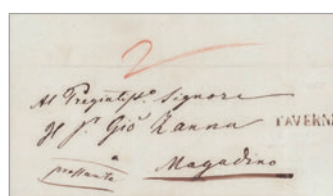 2
Al Pregiatis.º Signore
Il S.r Gio Zanna
TAVERN
a
pressante Magadino